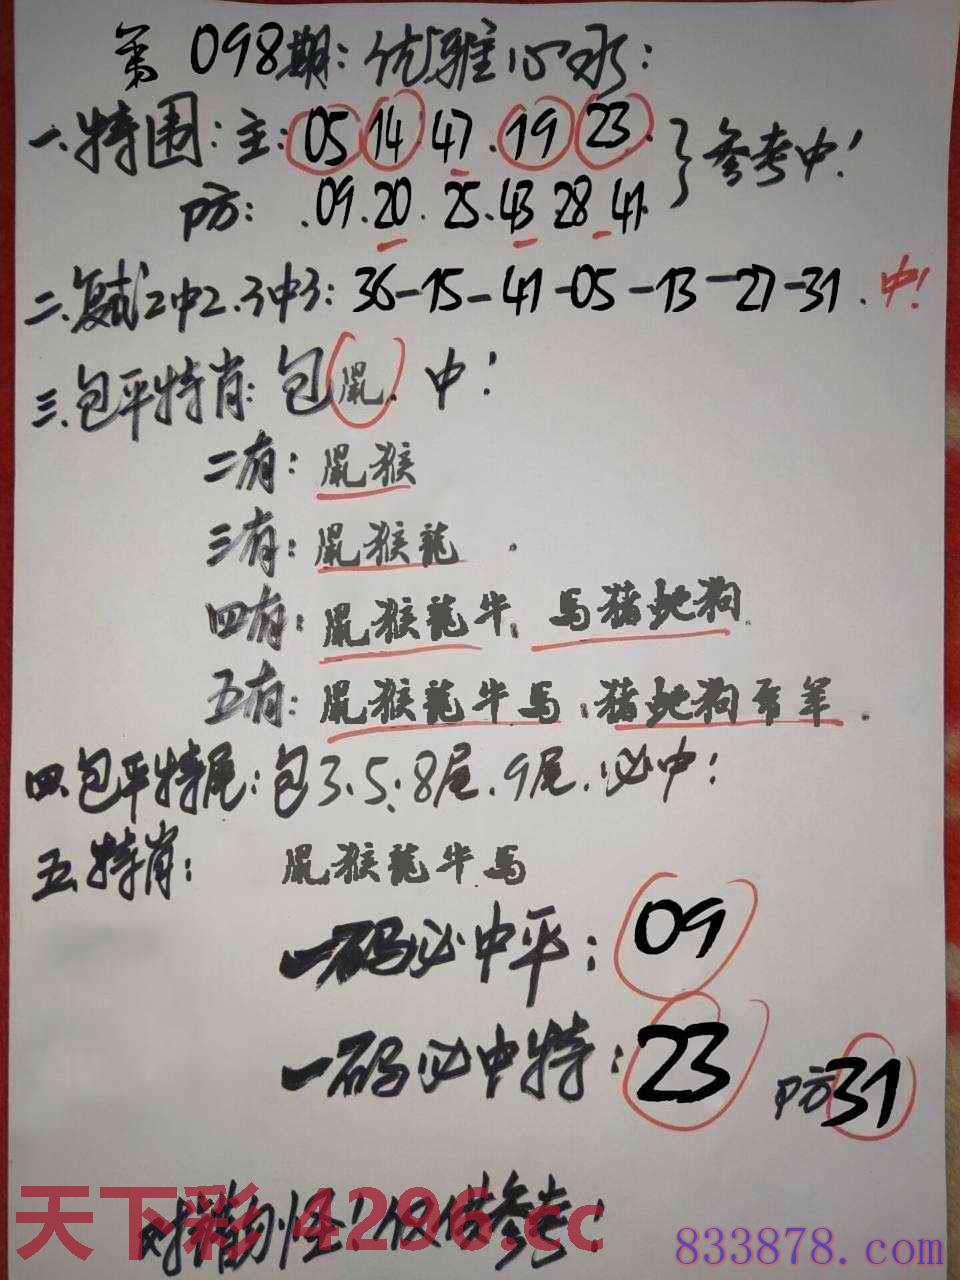 第098期:优雅心水:
一.特围:主:05 14 47.19 23.}参考中!
防:.09.20.25.43 28 41.
二.复试2中2.3中3:36-15-41-05-13-27-31.中!
三.包平特肖:包鼠.中!
二有:鼠猴
三有:鼠猴龍.
四有:鼠猴龍牛.馬猪蛇狗.
五有:鼠猴龍牛馬.猪蛇狗 羊.
四.包平特尾:包3.5.8尾.9尾.必中!
五.特肖:鼠猴龍牛馬
一码必中平:09
一码必中特:23 防31
仅供参考!
天下彩 4296.cc
833878.com